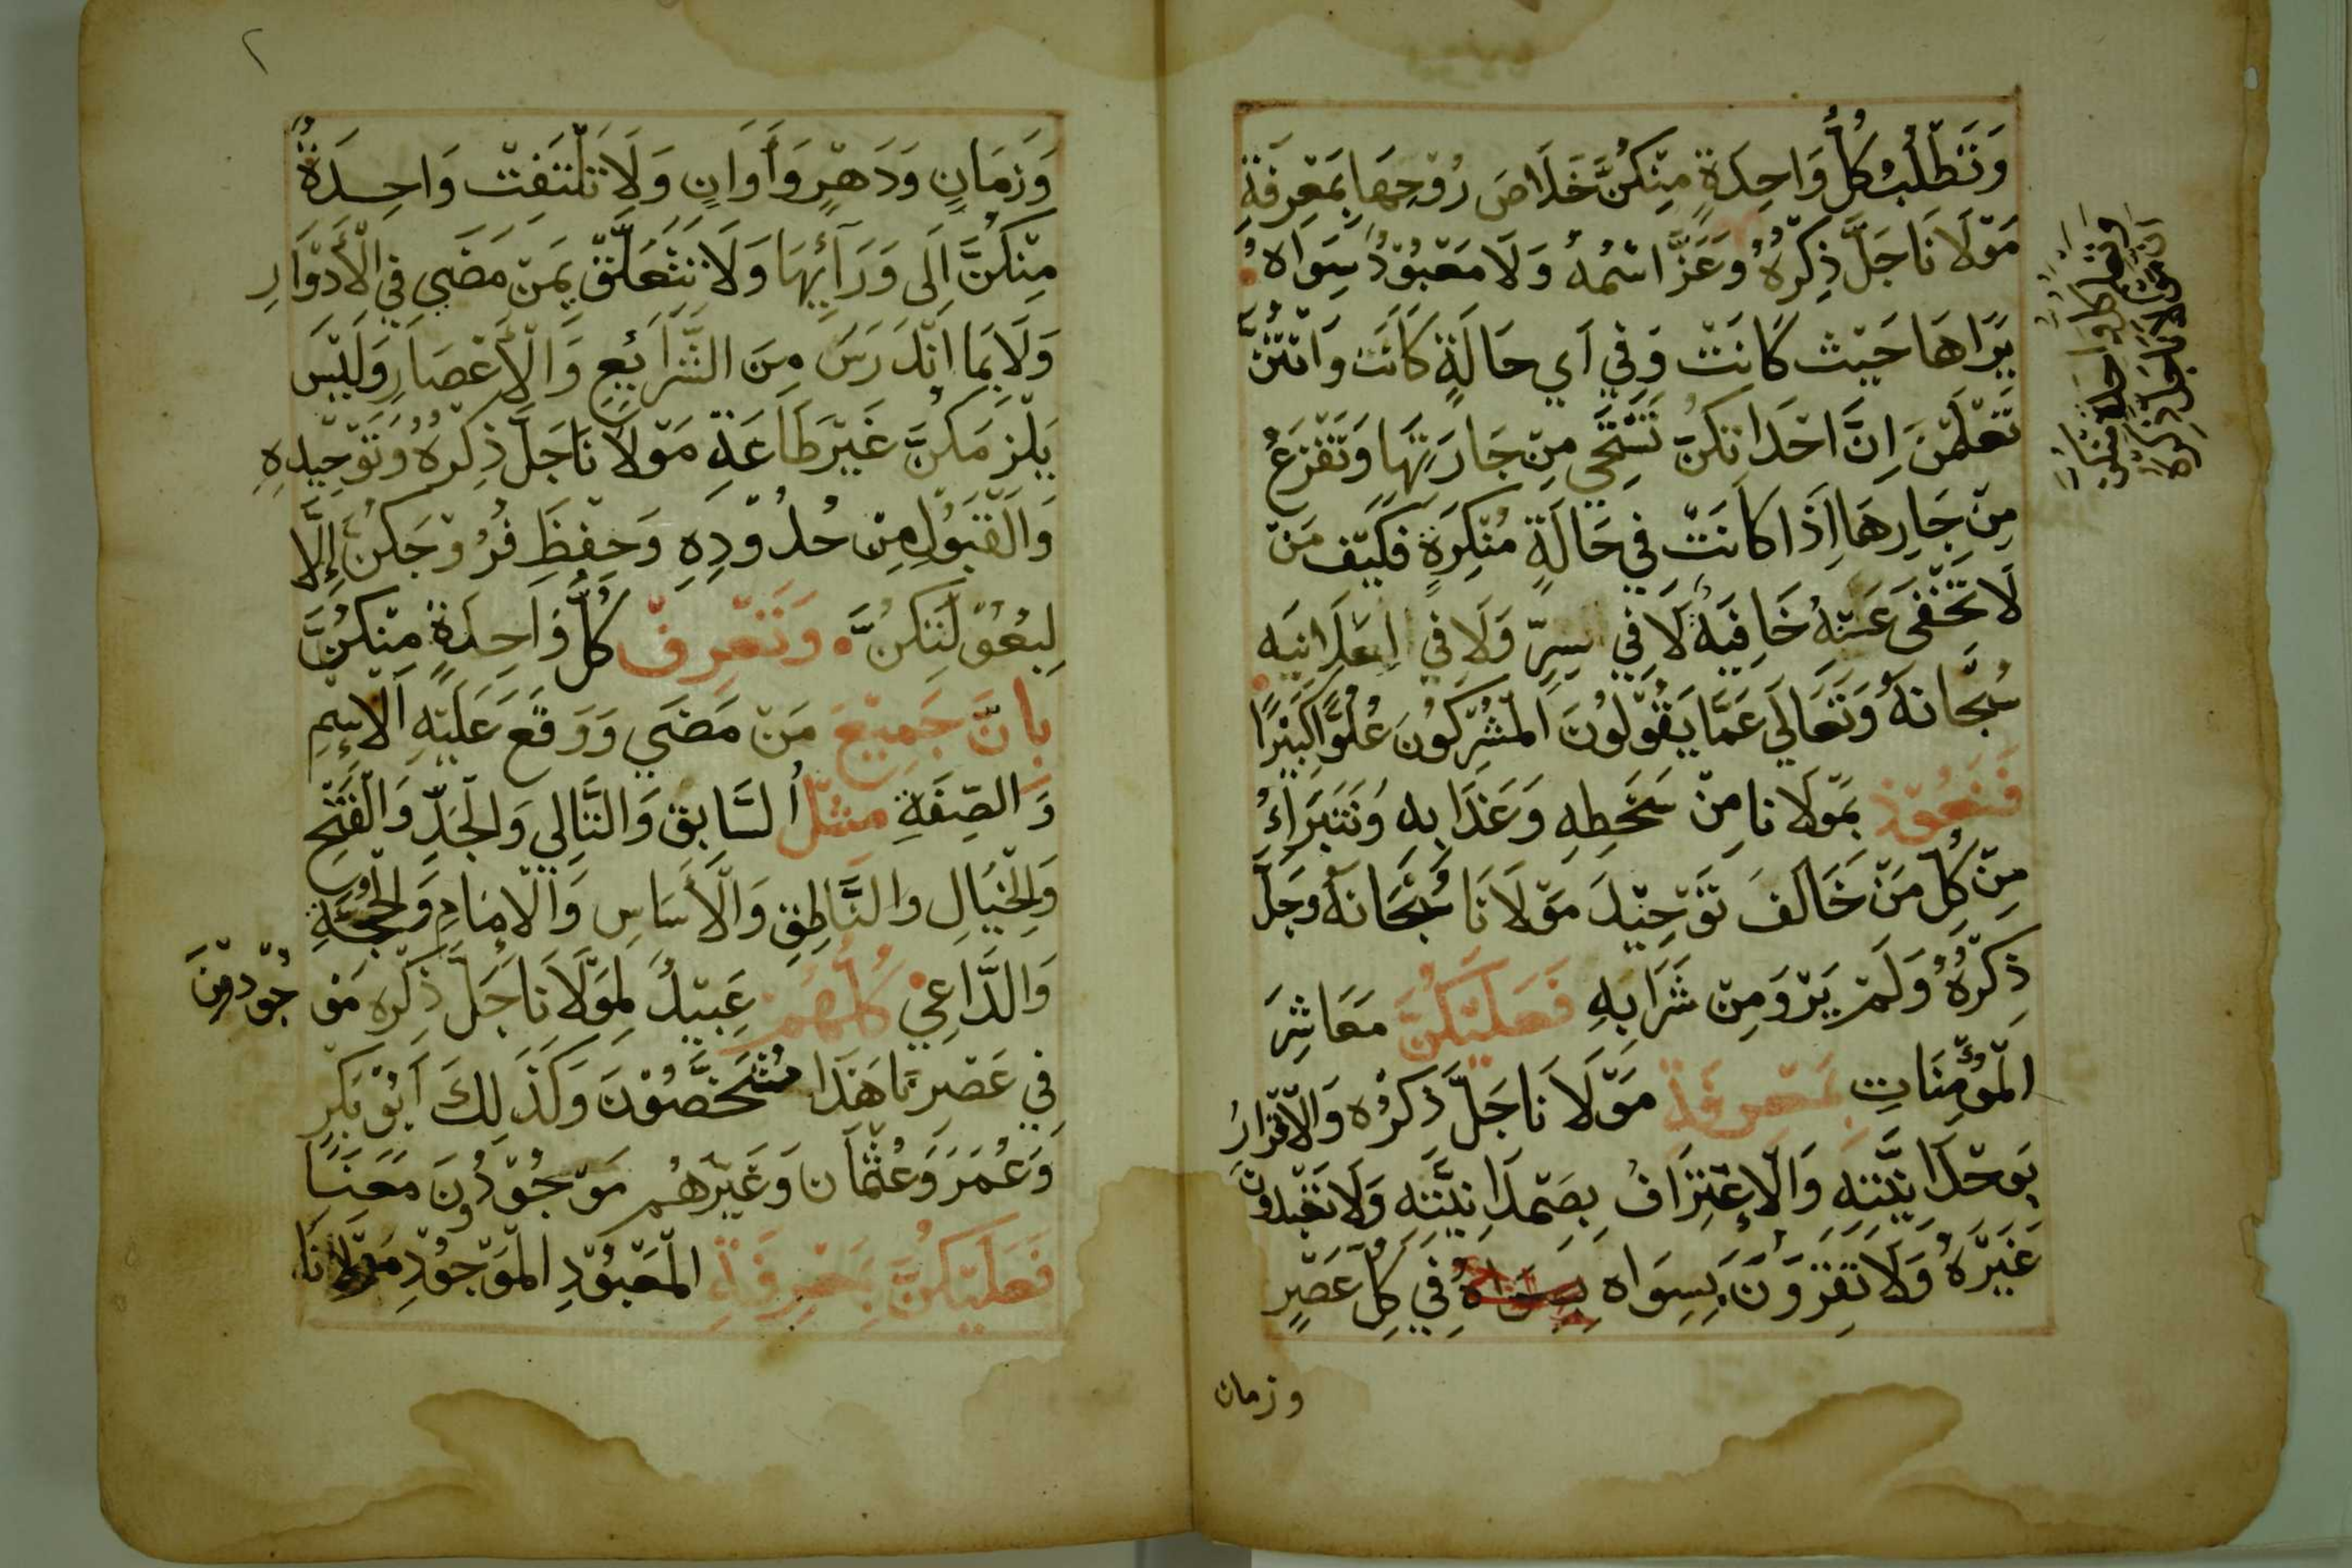 وَتَطْلُبُ كُلُّ وَاحِدَةٍ مِنْكُنَّ خَلَاصَ رُوْحِهَا بِمَعْرِفَةِ
مَوْلَانَا جَلَّ ذِكْرُهُ وَعَزَّ اسْمُهُ وَلَا مَعْبُوْدُ سِوَاهُ
يَرَاهَا حَيْثُ كَانَتْ وَفِي اَي حَالَةٍ كَانَت وَانْتُنَّ
تَعْلَمْنَ اِنَّ احْدَاكُنَّ تَسْتَحِي مِنْ جَارَتِهَا وَتَفْزَعُ
مِنْ جَارِهَا اِذَا كَانَتْ فِي حَالَةٍ مُنْكِرَةٍ فَكَيْفَ مَنْ
لَا تَخْفَى عَنْهُ خَافِيَهُ لَا فِي سِرٍّ وَلَا فِي اعَلَانِيَه
سُبْحَانَهُ وَتَعَالَى عَمَّا يَقُوْلُونَ الْمُشْرِكُونَ عُلُوًّا كَبِيْرًا
فَنَعُوْذُ بِمَوْلَانَا مِنْ سَخَطِهِ وَعَذَابِهِ وَنَتَبَرَاءُ
مِنْ كُلِّ مَنْ خَالَفَ تَوْحِيْدَ مَوْلَانَا سُبْحَانَهُ وَجَلَّ
ذِكْرُهُ وَلَمْ يَرْوَ مِنْ شَرَابِهِ فَعَلَيْكُنَّ مَعَاشِرَ
الْمُؤْمِنَاتِ بِمَعْرِفَة مَوْلَانَا جَلَّ ذِكْرُه وَالْاقْرَارُ
بِوَحْدَانِيَّتِهِ وَالْإعْتِرَافُ بِصَمْدَانِيَّتِهِ وَلَا تَعْبُدُونَ
غَيْرَهُ وَلَا تَقِرُّوْنَ بِسِوَاه بِسِوَاهُ فِي كُلِّ عَصْرٍ
وزمان
وتعلم كل واحدة منكن
ان مولانا جل ذكره
٢
وَزَمَانٍ وَدَهْرٍ وَأَوَانٍ وَلَا تَلْتَفِتْ وَاحِدَةٌ
مِنْكُنَّ اِلَى وَرَآئِهَا وَلَا تَتَعَلَّقْ بِمَنْ مَضَى فِي الْأَدْوَارِ
وَلَا بِمَا انْدَرَسَ مِنَ الشَّرَائِعِ وَالْأَعْصَارِ وَلَيْسَ
يَلْزَمَكُنَّ غَيْرَ طَاعَةِ مَوْلَانَا جَلَّ ذِكْرُهُ وَتَوْحِيْدِهِ
وَالْقَبُوْلِ مِنْ حُدُوْدِهِ وَحِفْظَ فُرُوْجَكُنَّ إِلَّا
لِبُعُوْلَتِكُنَّ وَتَعْرِفْ كُلُّ وَاحِدَةٍ مِنْكُنَّ
بِانَّ جَمِيْعَ مَنْ مَضَى وَوَقَعَ عَلَيْهِ الْاِسْمِ
وَالصِّفَةِ مثل السَّابِقِ وَالتَّالِي وَالْجَدِّ وَالْفَتْحِ
وَالْخَيَالِ وَالنَّاطِقِ وَالْأَسَاسِ وَالْإمَامِ وَالْحُجَّةِ
وَالدَّاعِي كُلُّهُمْ عَبِيْدُ لِمَوْلَانَا جَلَّ ذِكْرِه مَوْجُوْدِيْنَ
فِي عَصْرِنَا هَذَا مُتَشَخِّصُوْنَ وَكَذَلِكَ اَبُوْ بَكْرٍ
وَعُمَرَ وَعُثْمَان وَغَيْرُهُمْ مَوْجُوْدُوْنَ مَعَنَا
فَعَلَيْكُنَّ بِمَعْرِفَةِ الْمَعْبُوْدِ الْمَوْجُوْدِ مَوْلَانَا